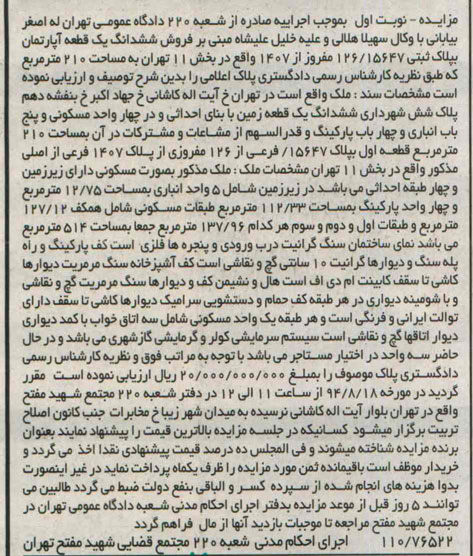 مزایده - نوبت اول بموجب اجراییه صادره از شعبه ۲۲۰ دادگاه عمومی تهران له اصغر
بیابانی با وکال سهیلا هلالی و علیه خلیل علیشاه مبنی بر فروش ششدانگ یک قطعه آپارتمان
بپلاک ثبتی ۱۲۶/۱۵۶۴۷ مفروز از ۱۴۰۷ واقع در بخش ۱۱ تهران به مساحت ۲۱۰ مترمربع
که طبق نظریه کارشناس رسمی دادگستری پلاک اعلامی را بدین شرح توصیف و ارزیابی نموده
است مشخصات سند : ملک واقع است در تهران خ آیت اله کاشانی خ جهاد اکبر خ بنفشه دهم
پلاک شش شهرداری ششدانگ یک قطعه زمین با بنای احداثی و در چهار واحد مسکونی و پنج
باب انباری و چهار باب پارکینگ و قدرالسهم از مشاعات و مشترکات در آن بمساحت ۲۱۰
مترمربع قطعه اول بپلاک ۱۵۶۴۷/ فرعی از ۱۲۶ مفروزی از پلاک ۱۴۰۷ فرعی از اصلی
مذکور واقع در بخش ۱۱ تهران مشخصات ملک : ملک مذکور بصورت مسکونی دارای زیرزمین
و چهار طبقه احداثی می باشد در زیرزمین شامل ۵ واحد انباری بمساحت ۱۲/۷۵ مترمربع
و چهار واحد پارکینگ بمساحت ۱۱۲/۳۳ مترمربع طبقات مسکونی شامل همکف ۱۲۷/۱۲
مترمربع و طبقات اول و دوم و سوم هر کدام ۱۳۷/۹۶ مترمربع جمعا بمساحت ۵۱۴ مترمربع
می باشد نمای ساختمان سنگ گرانیت درب ورودی و پنجره ها فلزی است کف پارکینگ و راه
پله سنگ و دیوارها گرانیت ۱۰ سانتی گچ و نقاشی است کف آشپزخانه سنگ مرمریت دیوارها
کاشی تا سقف کابینت ام دی اف است هال و نشیمن کف و دیوارها سنگ مرمریت گچ و نقاشی
و با شومینه دیواری در هر طبقه کف حمام و دستشویی سرامیک دیوارها کاشی تا سقف دارای
توالت ایرانی و فرنگی است و هر طبقه یک واحد مسکونی شامل سه اتاق خواب با کمد دیواری
دیوار اتاقها گچ و نقاشی است سیستم سرمایشی کولر و گرمایشی گازشهری می باشد و در حال
حاضر سه واحد در اختیار مستاجر می باشد با توجه به مراتب فوق و نظریه کارشناس رسمی
دادگستری پلاک موصوف را بمبلغ ۲۰/۰۰۰/۰۰۰/۰۰۰ ریال ارزیابی نموده است مقرر
گردید در مورخه ۹۴/۸/۱۸ از ساعت ۱۱ الی ۱۲ در دفتر شعبه ۲۲۰ مجتمع شهید مفتح
واقع در تهران بلوار آیت اله کاشانی نرسیده به میدان شهر زیبا خ مخابرات جنب کانون اصلاح
تربیت برگزار میشود کسانیکه در جلسه مزایده بالاترین قیمت را پیشنهاد نمایند بعنوان
برنده مزایده شناخته میشوند و فی المجلس ده درصد قیمت پیشنهادی نقدا اخذ می گردد و
خریدار موظف است باقیمانده ثمن مورد مزایده را ظرف یکماه پرداخت نماید در غیر اینصورت
بدوا هزینه های انجام شده از سپرده کسر و الباقی بنفع دولت ضبط می گردد طالبین می
توانند ۵ روز قبل از موعد مزایده بدفتر اجرای احکام مدنی شعبه دادگاه عمومی تهران در
مجتمع شهید مفتح مراجعه تا موجبات بازدید آنها از مال فراهم گردد
۱۱۰/۷۶۵۲۲ اجرای احکام مدنی شعبه ۲۲۰ مجتمع قضایی شهید مفتح تهران